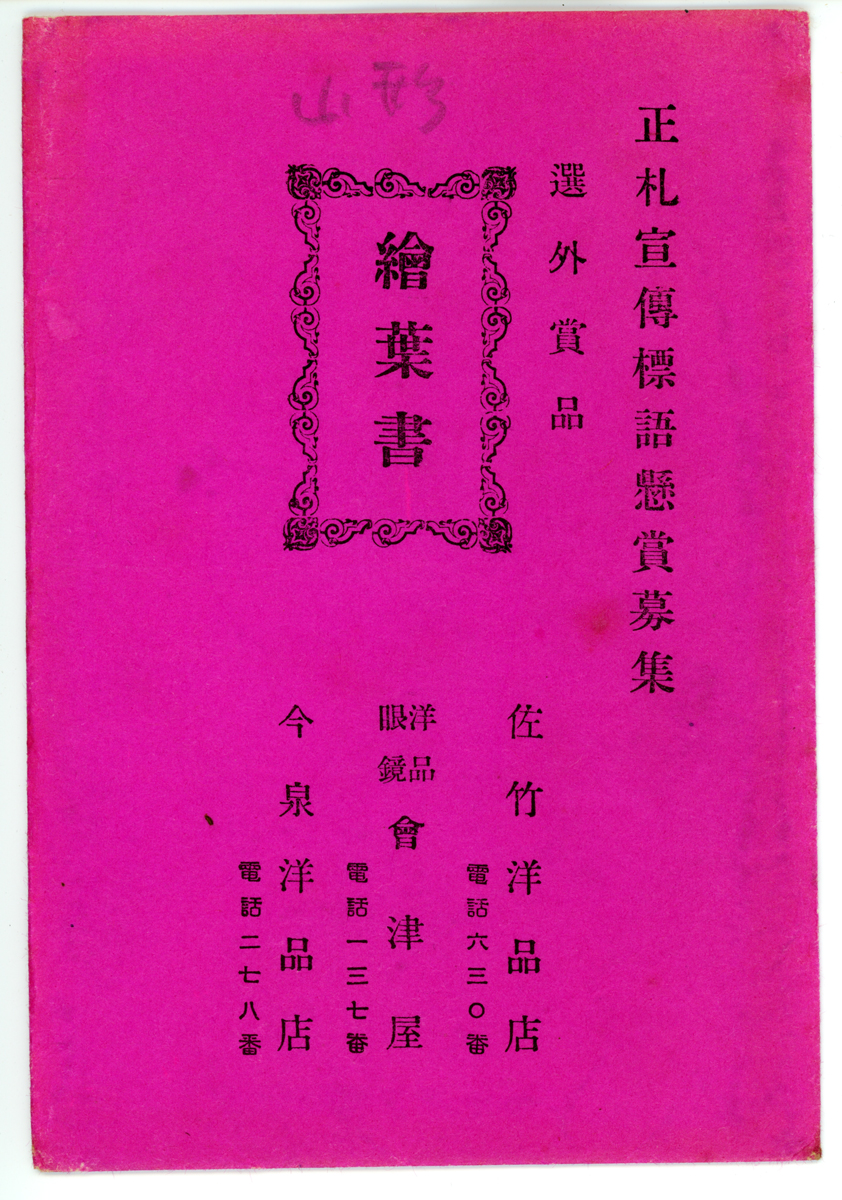 山形
正札宣傳標語懸賞募集
選外賞品
繪葉書
佐竹洋品店
電話六三〇番
洋品
眼鏡
會津屋
電話一三七番
今泉洋品店
電話二七八番